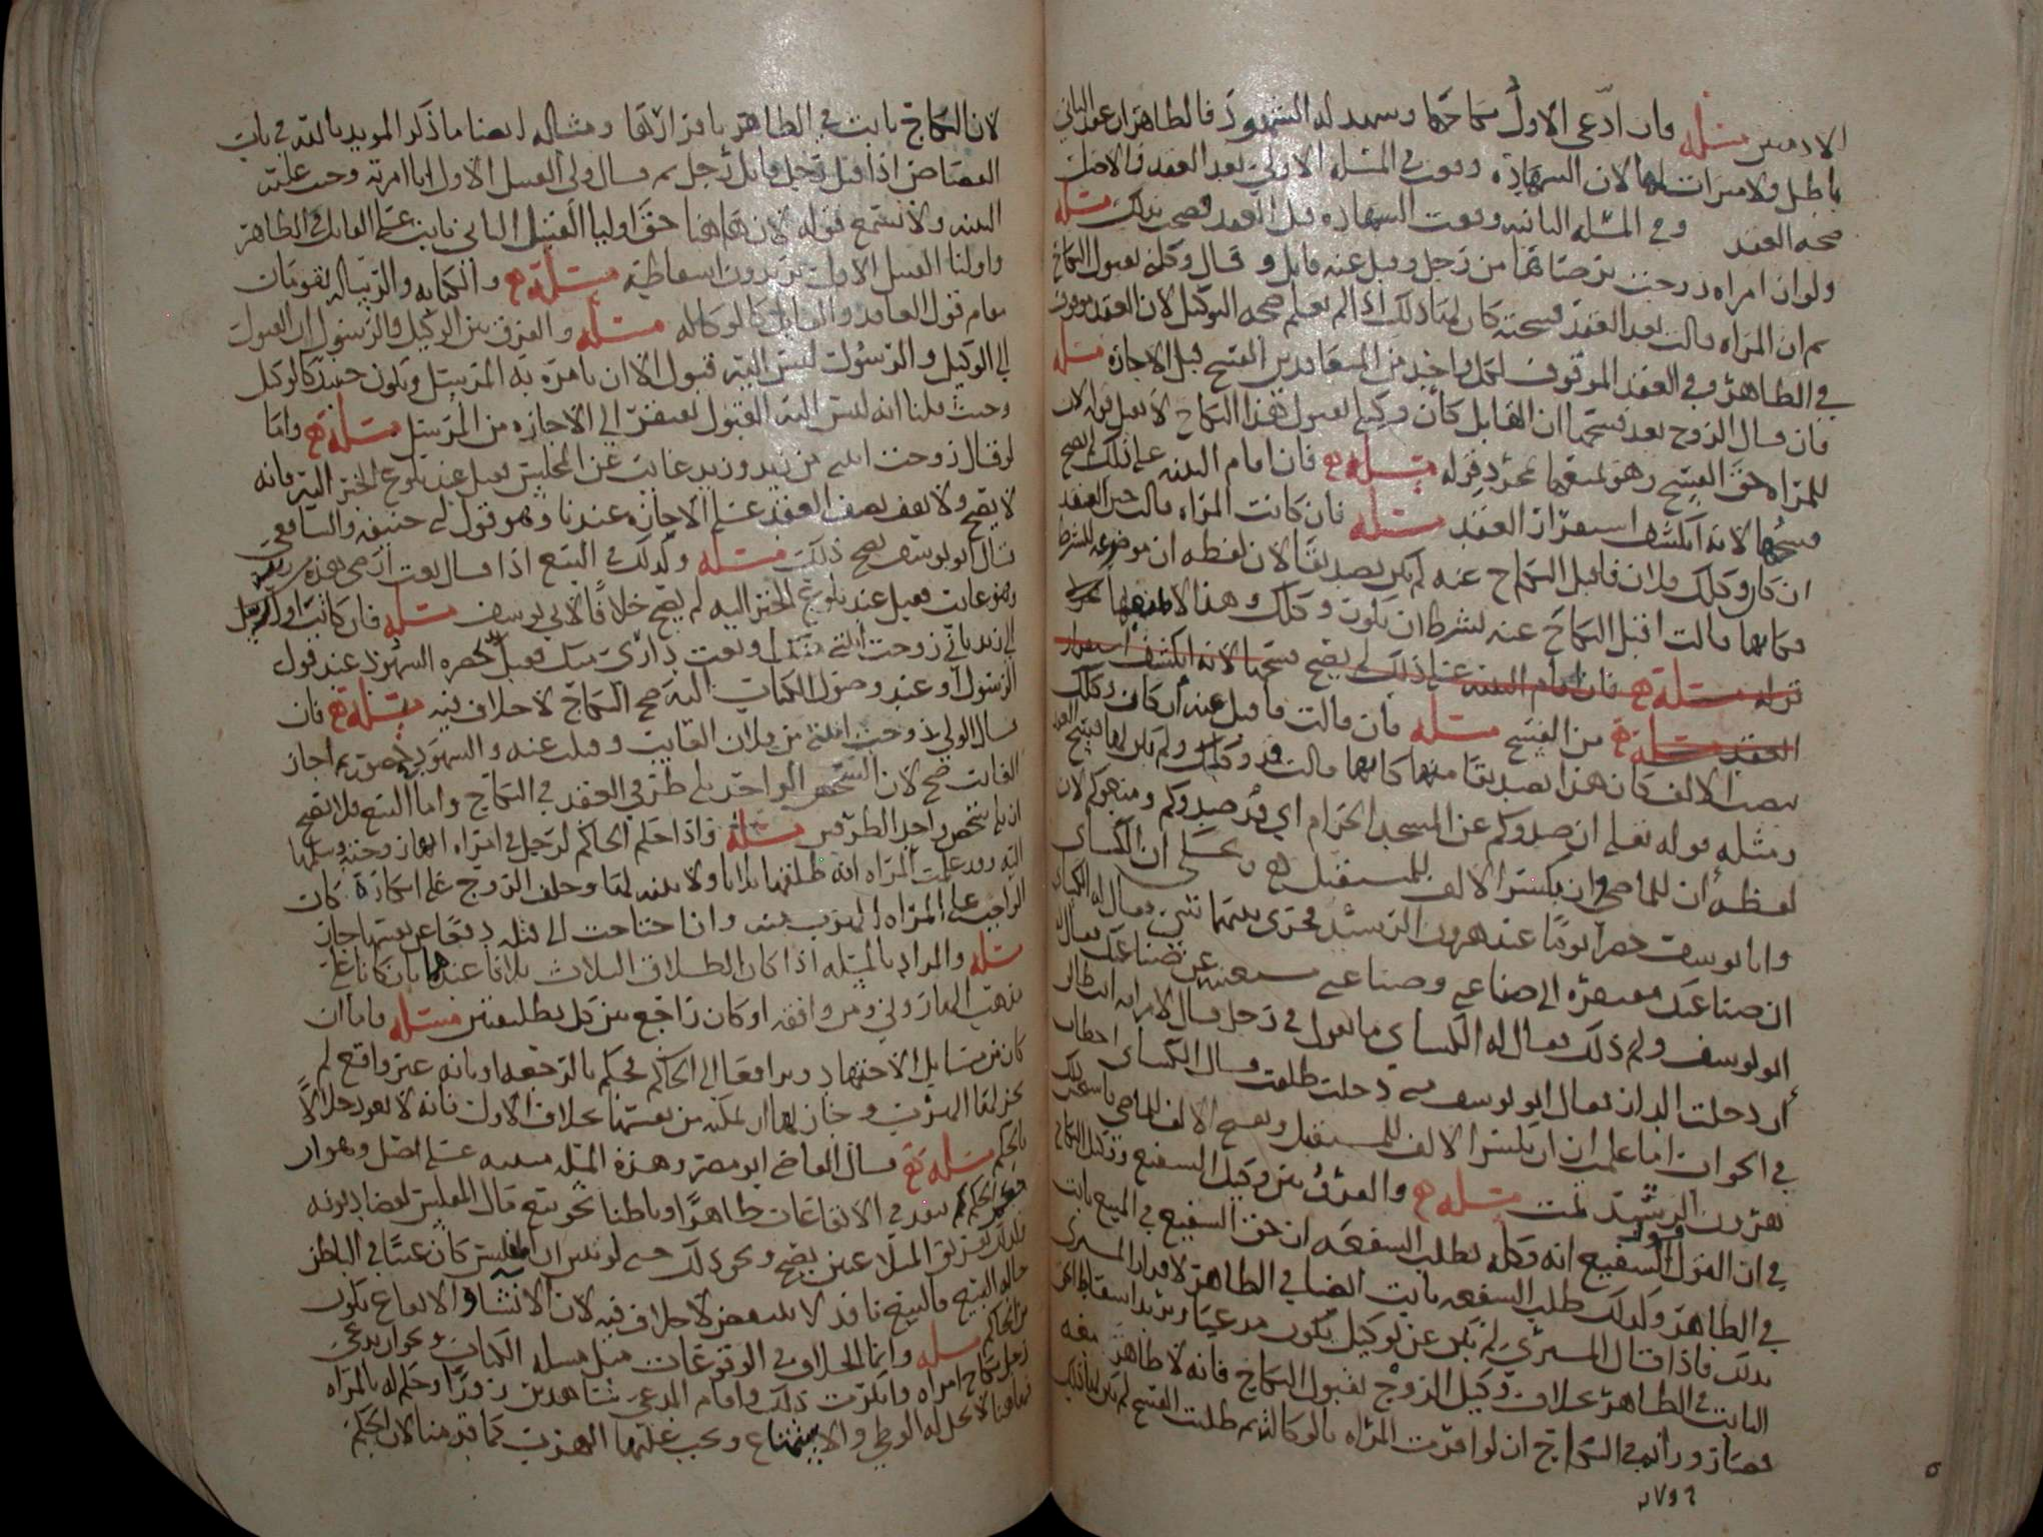 مسئلة فان ادعى الاول نكاحها وشهد له الشهود فالظاهر ان عقد الثاني
باطل ولا ميراث لها لان الشهادة وقعت في المسئلة الاولى بعد العقد فالاصل
صحة العقد وفي المسئلة الثانية وقعت الشهادة قبل العقد فصح بذلك مسئلة
ولو ان امراة زوجت برضائها من رجل وقبل عنه قابل وقال وكله بقبول النكاح
ثم ان المراة قالت بعد العقد فسخته كان لها ذلك اذا لم يعلم صحة التوكيل لان العقد موقوف
في الظاهر وفي العقد الموقوف لكل واحد من المتعاقدين الفسخ قبل الاجازة مسئلة
فان قال الزوج بعد فسخها ان القابل كان وكيلي بقبول هذا النكاح لا يقبل قوله لان
للمراة حق الفسخ وهو يمنعها بمجرد قوله مسئلة فان اقام البينة على ذلك لم يصح
فسخها لانه انكشف استقرار العقد مسئلة فان كانت المراة قالت حين العقد
ان كان وكلك فلان فاقبل النكاح عنه لم يكن تصديقا لان لفظه ان موضوعه للشرط
فكانها قالت اقبل النكاح عنه بشرط ان يكون وكلك وهذا لا يمنعها
قوله مسئلة فان اقام البينة على ذلك لم يصح فسخها لانه انكشف استقرار
العقد مسئلة من الفسخ مسئلة فان قالت فاقبل عنه ان كان وكلك
بنصب الالف كان هذا تصديقا منها كانها قالت قد وكلك ولم يكن لها فسخ
ومثله قوله تعالى ان صدوكم عن المسجد الحرام اي قد صدوكم ومنعوكم لان
لفظه ان للماضي وان بكسر الالف للمستقبل وعلى ان الكسائي
وابا يوسف حضرا يوما عند هرون الرشيد فجرى بينهما شيء فقال له الكسائي
ان صناعتك مفتقرة الى صناعتي وصناعتي مستغنية عن صناعتك فقال
ابو يوسف ولم ذلك فقال له الكسائي ما تقول في رجل قال لامراته انت طالق
أن دخلت الدار فقال ابو يوسف متى دخلت طلقت فقال الكسائي اخطات
في الجواب اما علمت ان ان بكسر الالف للمستقبل وبفتح الالف للماضي
هرون الرشيد تمت مسئلة والفرق بين وكيل الشفيع ووكيل النكاح
في ان القول قول الشفيع انه وكله بطلب الشفعة ان حق الشفيع في المبيع ثابت
في الظاهر وكذلك طلب الشفعة ثابت ايضا في الظاهر لاقرار المشتري
بذلك فاذا قال المشتري لم يكن عن توكيل يكون مدعيا ويريد اسقاط الحق
الثابت في الظاهر بخلاف وكيل الزوج بقبول النكاح فانه لا ظاهر معه
فصار وزانه في النكاح ان لو اقرت المراة بالوكالة ثم طلبت الفسخ لم يكن لها ذلك
لان النكاح ثابت في الظاهر باقرارها ومثاله ايضا ما ذكر المويد بالله في باب
القصاص اذا قتل رجل قاتل رجل ثم قال ولي القتيل الاول انا امرته وجب عليه
البينة ولا يسمع قوله لان هاهنا حق اوليا القتيل الثاني ثابت على القاتل في الظاهر
واوليا القتيل الاول يريدون اسقاطه مسئلة والكتابة والرسالة يقومان
مقام قول العاقد والقابل كالوكالة مسئلة والفرق بين الوكيل والرسول ان القبول
الى الوكيل والرسول ليس اليه قبول الا ان يامره به المرسل ويكون حينئذ كالوكيل
وحيث قلنا انه ليس اليه القبول يفتقر الى الاجازة من المرسل مسئلة واما
لو قال زوجت ابنتي من زيد وزيد غائب عن المجلس فقبل عند بلوغ الخبر اليه فانه
لا يصح ولا يقف نصف العقد على الاجازة عندنا وهو قول ابي حنيفة والشافعي
قال ابو يوسف يصح ذلك مسئلة وكذلك في البيع اذا قال بعت ارضي هذه من زيد
وهو غائب فقبل عند بلوغ الخبر اليه لم يصح خلافا لابي يوسف مسئلة فان كاتب او ارسل
الى زيد باني زوجت ابنتي منك او بعت داري منك فقبل بحضرة الشهود عند قول
الرسول او عند وصول الكتاب اليه صح النكاح لا خلاف فيه مسئلة فان
قال الولي زوجت ابنتي من فلان الغايب وقبلت عنه والشهود حضور ثم اجاز
الغائب صح لان الشخص الواحد يلي طرفي العقد في النكاح واما البيع فلا يصح
ان يلي شخص واحد الطرفين مسئلة واذا حكم الحاكم لرجل في امراة انها زوجته وسلمها
اليه وقد علمت المراة انه طلقها ثلاثا ولا بينة لها وحلف الزوج على انكاره كان
الواجب على المراة الهرب منه وان احتاجت الى قتله دفعا عن نفسها جاز
مسئلة والمراد بالمسئلة اذا كان الطلاق الثلاث ثلاثا عندهما بان كانا على
مذهب واحد ومن وافقه او كان راجع بين كل تطليقتين مسئلة واما ان
كان من مسايل الاجتهاد وترافعا الى الحاكم فحكم بالرجعة او بانه غير واقع لم
يجز لها الهرب وجاز لها ان تمكنه من نفسها بخلاف الاول فانه لا يعود حلالا
بالحكم مسئلة قال القاضي ابو مضر وهذه المسئلة مبنية على اصل وهو ان
حكم الحاكم ينفذ في الايقاعات ظاهرا وباطنا نحو بيع مال المفلس لقضا ديونه
وكذلك تفريق المتلاعنين يصح ونحو ذلك حتى لو تبين ان المفلس كان غنيا في الباطن
حالة البيع فالبيع نافذ لا ينتقض لا خلاف فيه لان الانشا والايقاع يكون
من الحاكم مسئلة وانما الخلاف في الوقوعات مثل مسئلة الكتاب ونحو ان يدعي
رجل نكاح امراة وانكرت ذلك واقام المدعي شاهدين زورا وحكم له بالمراة
فهاهنا لا يحل له الوطي والاستمتاع ويجب عليها الهرب كما قدمنا لان الحكم